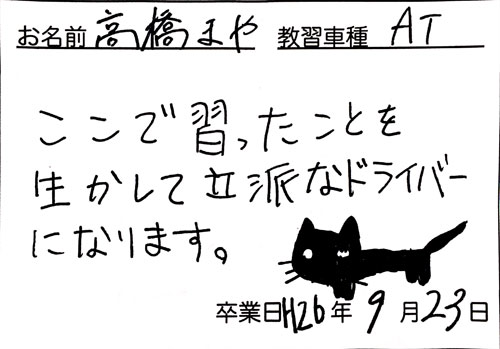 お名前 高橋まや 教習車種 AT
ここで習ったことを
生かして立派なドライバー
になります。
卒業日H26年9月23日